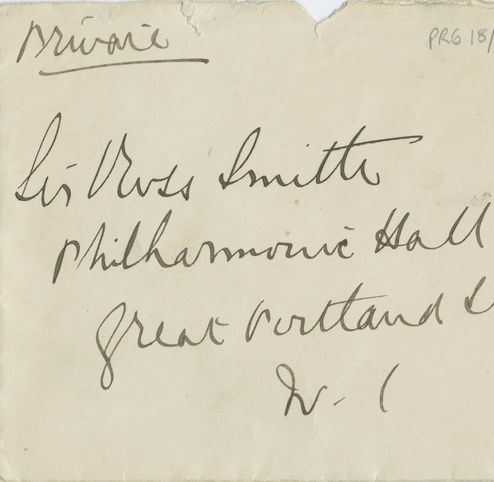 Private
PRG 18/
Sir Ross Smith
Philharmonic Hall
Great Portland S
W. 1